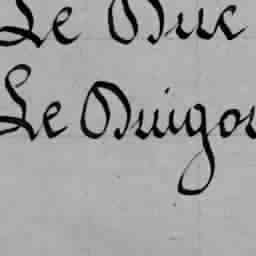 Le Duc
Le Duigou